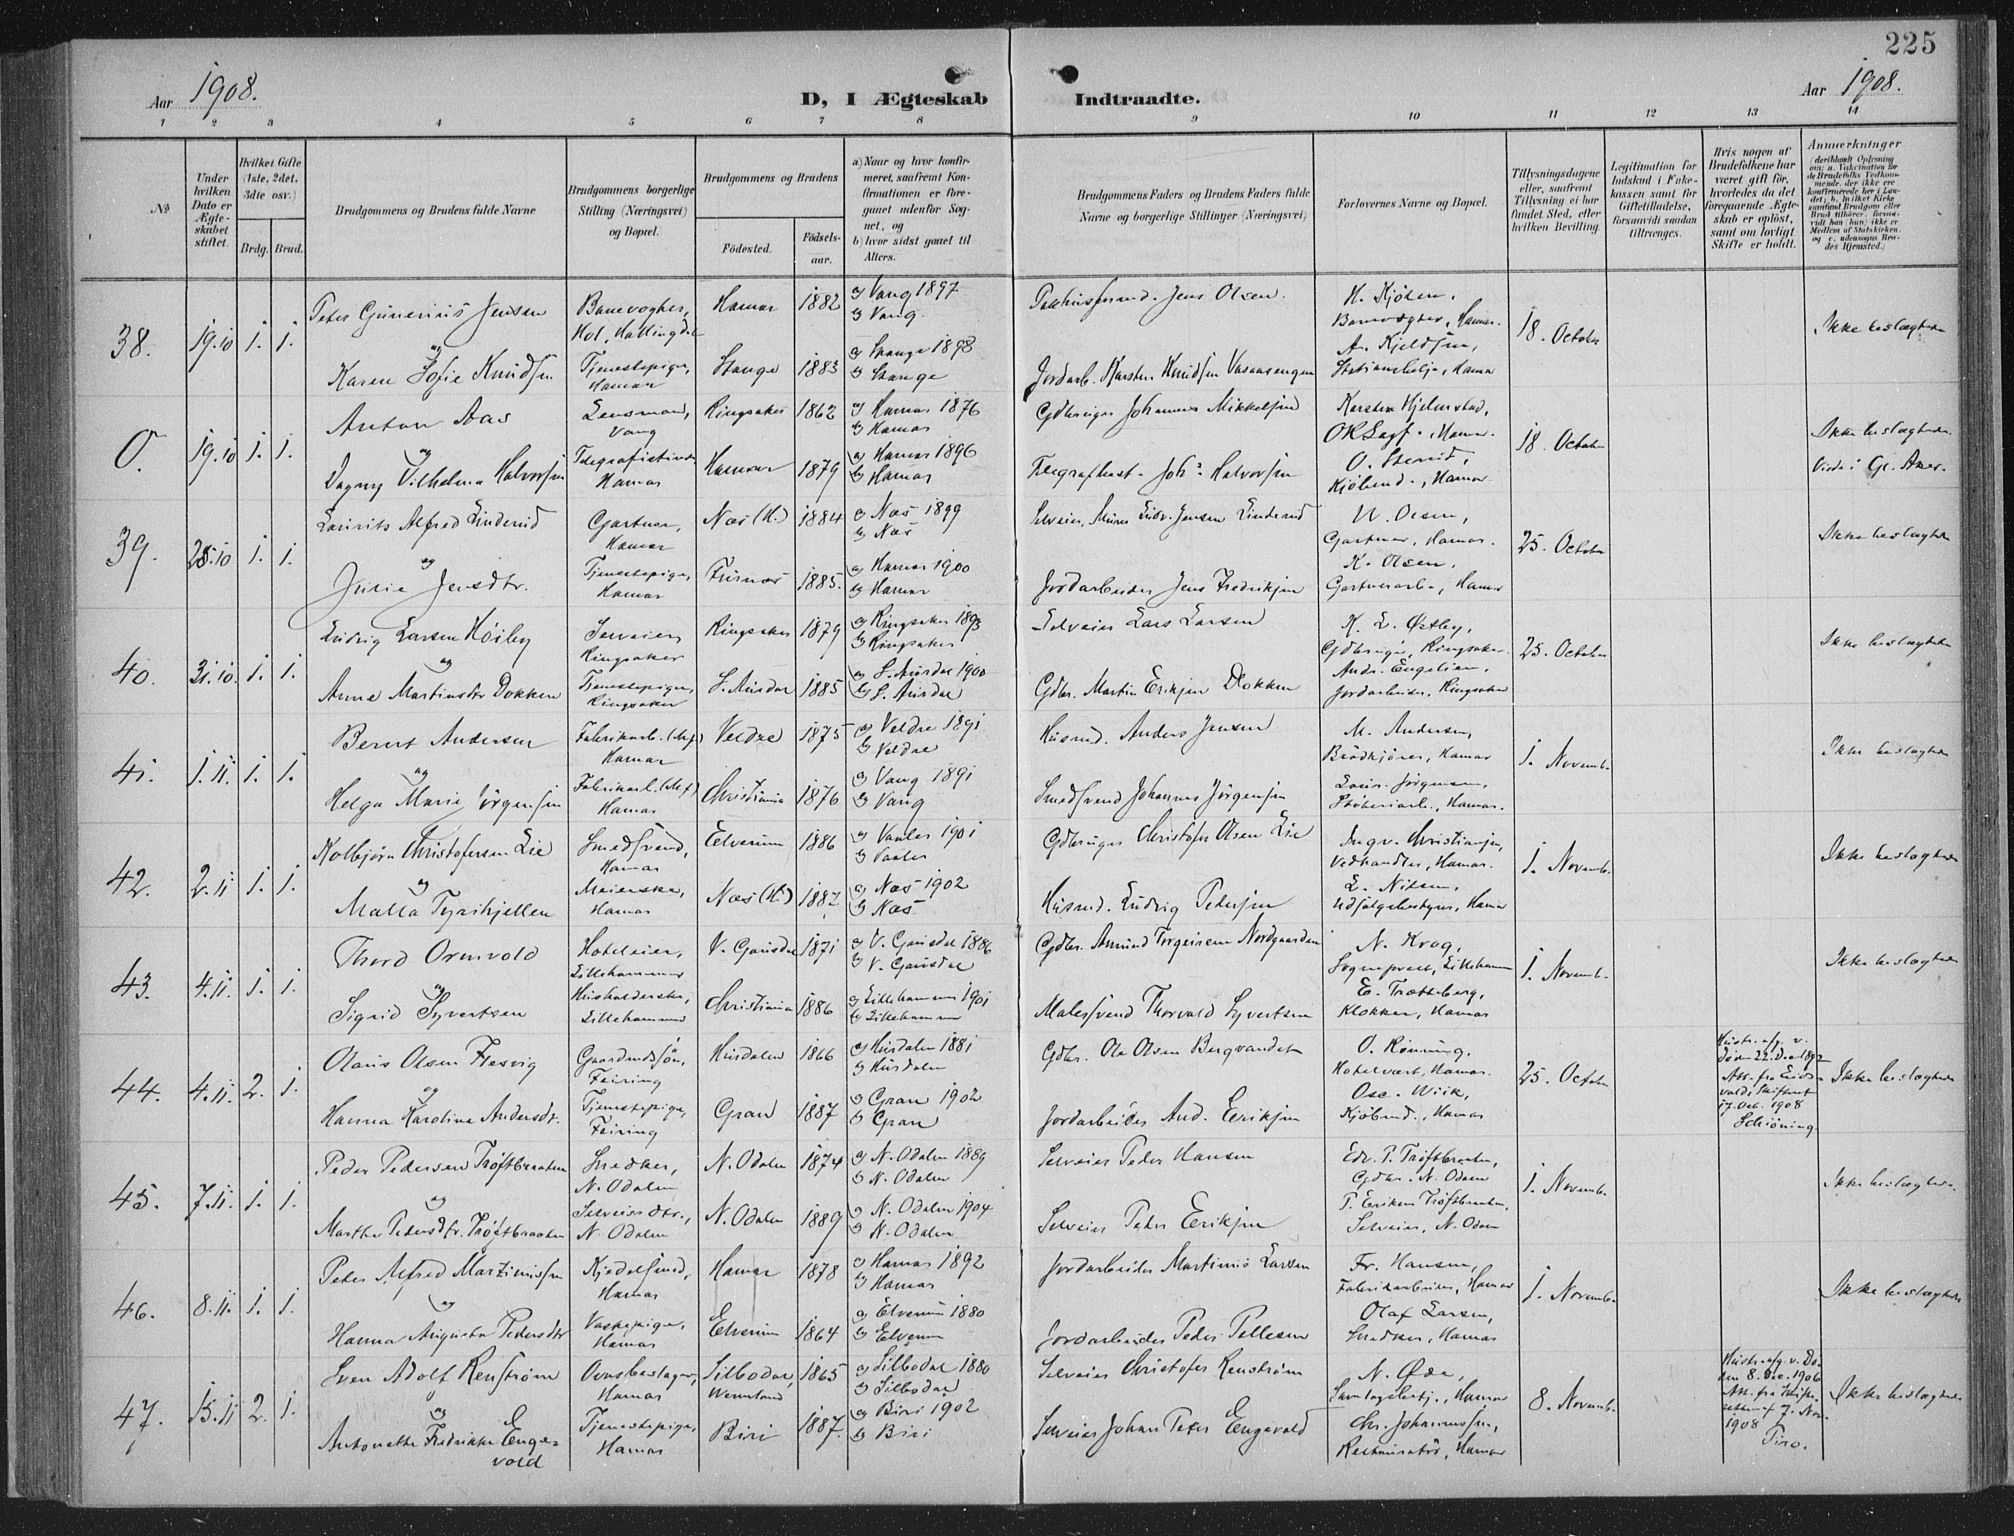 225
Aar 1908.
D, I Ægteskab Indtraadte.
Aar 1908.
1 2 3 4 5 6 7 8 9 10 11 12 13 14
No
Under hvilken Dato er Ægteskabet stiftet.
Hvilket Gifte (1ste, 2det, 3die osv.)
Brdg. Brud.
Brudgommens og Brudens fulde Navne
Brudgommens borgerlige Stilling (Næringsvei) og Bopæl.
Brudgommens og Brudens
Fødested.
Fødselsaar.
a) Naar og hvor konfirmeret, saafremt Konfirmationen er foregaaet udenfor Sognet, og
b) hvor sidst gaaet til Alters.
Brudgommens Faders og Brudens Faders fulde Navne og borgerlige Stillinger (Næringsvei)
Forlovernes Navne og Bopæl.
Tillysningsdagene eller, saafremt Tillysning ei har fundet Sted, efter hvilken Bevilling.
Legitimation for Indskud i Enkekassen samt for Giftetilladelse, forsaavidt saadan tiltrænges.
Hvis nogen af Brudefolkene har været gift før, hvorledes da det foregaaende Ægteskab er opløst, samt om lovligt Skifte er holdt.
Anmerkninger
38. 19.10 1. 1. Peter Gunerius Jensen Banevogter, Hol, Hallingdal Hamar 1882 a) Vang 1897 b) Vang Pakhusformd. Jens Olsen. H. Kjølsen, Banevogter, Hamar. 18. October Ikke beslægtede
og Karen Sofie Knudsen Tjenestepige, Hamar Stange 1883 a) Stange 1898 b) Stange Jordarb. Karsten Knudsen Vasaasengen A. Kjeldsen, Stationsbetj., Hamar
O. 19.10 1. 1. Anton Aas Lensmand, Vang Ringsaker 1862 a) Hamar 1876 b) Hamar Gdbruger Johannes Mikkelsen Karsten Hjelmstad, ORSagf., Hamar. 18. October Ikke beslægtede. Viede i Gl. Amer.
og Dagny Vilhelma Halvorsen Telegrafistinde Hamar Hamar 1879 a) Hamar 1896 b) Hamar Telegrafbest. Johs Halvorsen Kjøbmd., Hamar
39. 25.10 1. 1. Laurits Alfred Linderud Gartner, Hamar Næs (H.) 1884 a) Næs 1899 b) Næs Selveier, Murer Ludv. Jensen Linderud U. Olsen, Gartner, Hamar. 25. October Ikke beslægtede
og Julie Jensdtr. Tjenestepige, Hamar Furnæs 1885. a) Hamar 1900 b) Hamar Jordarbeider Jens Fredriksen K. Olsen, Gartnerarb., Hamar
40. 31.10. 1. 1. Ludvig Larsen Høiby Selveier, Ringsaker Ringsaker 1879 a) Ringsaker 1893 b) Ringsaker Selveier Lars Larsen K. L. Østby, Gdbruger, Ringsaker. 25. October Ikke beslægtede
og Anne Martinsdtr Dokken Tjenestepige, Ringsaker S. Aurdal 1885 a) S. Aurdal 1900 b) S. Aurdal Gdbr. Martin Eriksen Dokken Andr. Engelien, Jordarbeider, Ringsaker
41. 1.11. 1. 1. Bernt Andersen Fabrikarb. (M.f.) Hamar Veldre 1875 a) Veldre 1891 b) Veldre Husmd. Anders Jensen M. Andersen, Brødkjører, Hamar 1. Novemb. Ikke beslægtede
og Helga Marie Jørgensen Fabrikarb. (M.f.) Hamar Christiania 1876 a) Vang 1891 b) Vang Smedsvend Johannes Jørgensen Laur. Jørgensen, Støberiarb., Hamar.
42. 2.11. 1. 1. Kolbjørn Christofersen Lie Smedsvend, Hamar Elverum 1886 a) Vaaler 1901 b) Vaaler Gdbruger Christofer Olsen Lie Ingv. Christiansen, Vedhandler, Hamar. 1. Novemb. Ikke beslægtede
og Malla Tyrihjellen Meierske, Hamar Næs (H.) 1887 a) Næs 1902 b) Næs Husmd. Ludvig Pedersen L. Nilsen, Udsalgsbestyrer, Hamar
43. 4.11. 1. 1. Thord Ormvold Hoteleier, Lillehammer V. Gausdal 1871 a) V. Gausdal 1886 b) V. Gausdal Gdbr. Amund Torgersen Nordgaarden N. Krag, Sogneprest, Lillehammer 1. Novemb. Ikke beslægtede
og Sigrid Syvertsen Husholderske, Lillehammer Christiania 1886 a) Lillehammer 1901 b) Lillehammer Malersvend Thorvald Syvertsen E. Trætteberg, Klokker, Hamar
44. 4.11. 2. 1. Olaus Olsen Flesvig Gaardmdssøn, Feiring Hurdalen 1866 a) Hurdalen 1881 b) Hurdalen Gdbr. Ole Olsen Bergvandet O. Rønning, Hotelvært, Hamar. 25. October Hustr. afg. v. Døden 22. Dec 1892 Att. fra Eidsvolds Skifteret 17. Oct. 1908 Schiøning Ikke beslægtede
og Hanna Karoline Andersdtr. Tjenestepige, Feiring Gran 1887 a) Gran 1902 b) Gran Jordarbeider And. Eriksen Osc. Wiik, Kjøbmd., Hamar
45. 7.11. 1. 1. Peder Pedersen Trøftbraaten Snedker, N. Odalen N. Odalen 1874 a) N. Odalen 1889 b) N. Odalen Selveier Peder Hansen Edv. P. Trøftbraaten, Gdbr. N. Odalen 1. Novemb. Ikke beslægtede.
og Marthe Pedersdtr. Trøftbraaten Selveierdtr., N. Odalen N. Odalen 1889 a) N. Odalen 1904 b) N. Odalen Selveier Peder Eriksen P. Eriksen Trøftbraaten, Selveier, N. Odalen
46. 8.11. 1. 1. Peter Alfred Martiniussen Kjedelsmed, Hamar Hamar 1878 a) Hamar 1892 b) Hamar Jordarbeider Martinius Larsen Fr. Hansen, Fabrikarbeider, Hamar 1. Novemb. Ikke beslægtede
og Hanna Augusta Pedersdtr Vaskepige, Hamar Elverum 1864 a) Elverum 1880 b) Elverum Jordarbeider Peder Pellesen Olaf Larsen, Snedker, Hamar
47. 15.11 2. 1. Sven Adolf Renstrøm Ovnsbeslager, Hamar Silbodal, Wermland 1865 a) Silbodal 1880 b) Silbodal Selveier Christofer Renstrøm N. Øde, Hamar 8. Novemb. Hustr. afg. v. Døden 8. Dec. 1906 Att. fra Skifteretten af 7. Nov. 1908 Ikke beslægtede
og Antonette Fredrikke Engevold Tjenestepige, Hamar Biri 1887. a) Biri 1902 b) Biri Selveier Johan Peter Engevold Chr. Johannessen, Restauratør, Hamar